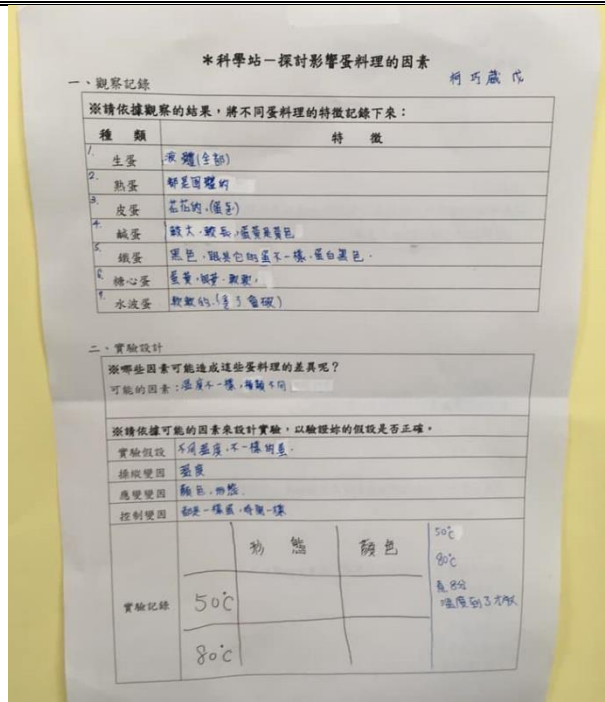 *科學站－探討影響蛋料理的因素
柯 巧 葳 戊
一、觀察記錄
※請依據觀察的結果，將不同蛋料理的特徵記錄下來：
種 類 特 徵
1. 生蛋 液體(全部)
2. 熟蛋 都是固體的
3. 皮蛋 花花的，(蛋色)
4. 鹹蛋 較大，較長，蛋黃是黃色
5. 鐵蛋 黑色，跟其它的蛋不一樣，蛋白黑色。
6. 糖心蛋 蛋黃，軟軟，
7. 水波蛋 軟軟的，會破)
二、實驗設計
※哪些因素可能造成這些蛋料理的差異呢？
可能的因素：溫度不一樣，種類不同
※請依據可能的因素來設計實驗，以驗證妳的假設是否正確。
實驗假設 不同溫度，不一樣的蛋。
操縱變因 溫度
應變變因 顏色，形態。
控制變因 都是一樣蛋，時間一樣
實驗記錄
形 態 顏 色
50℃
80℃
50℃
80℃
煮8分
溫度到了才放